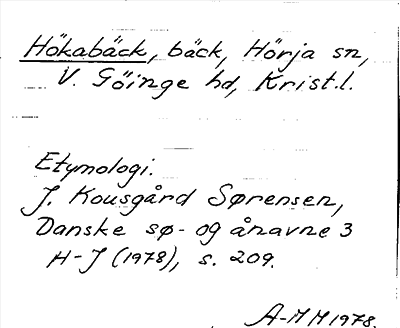 Hökabäck, bäck, Hörja sn,
V. Göinge hd, Krist.l.
Etymologi.
J. Kousgård Sørensen,
Danske sø- og ånavne 3
H-J (1978), s. 209.
A-MM 1978.